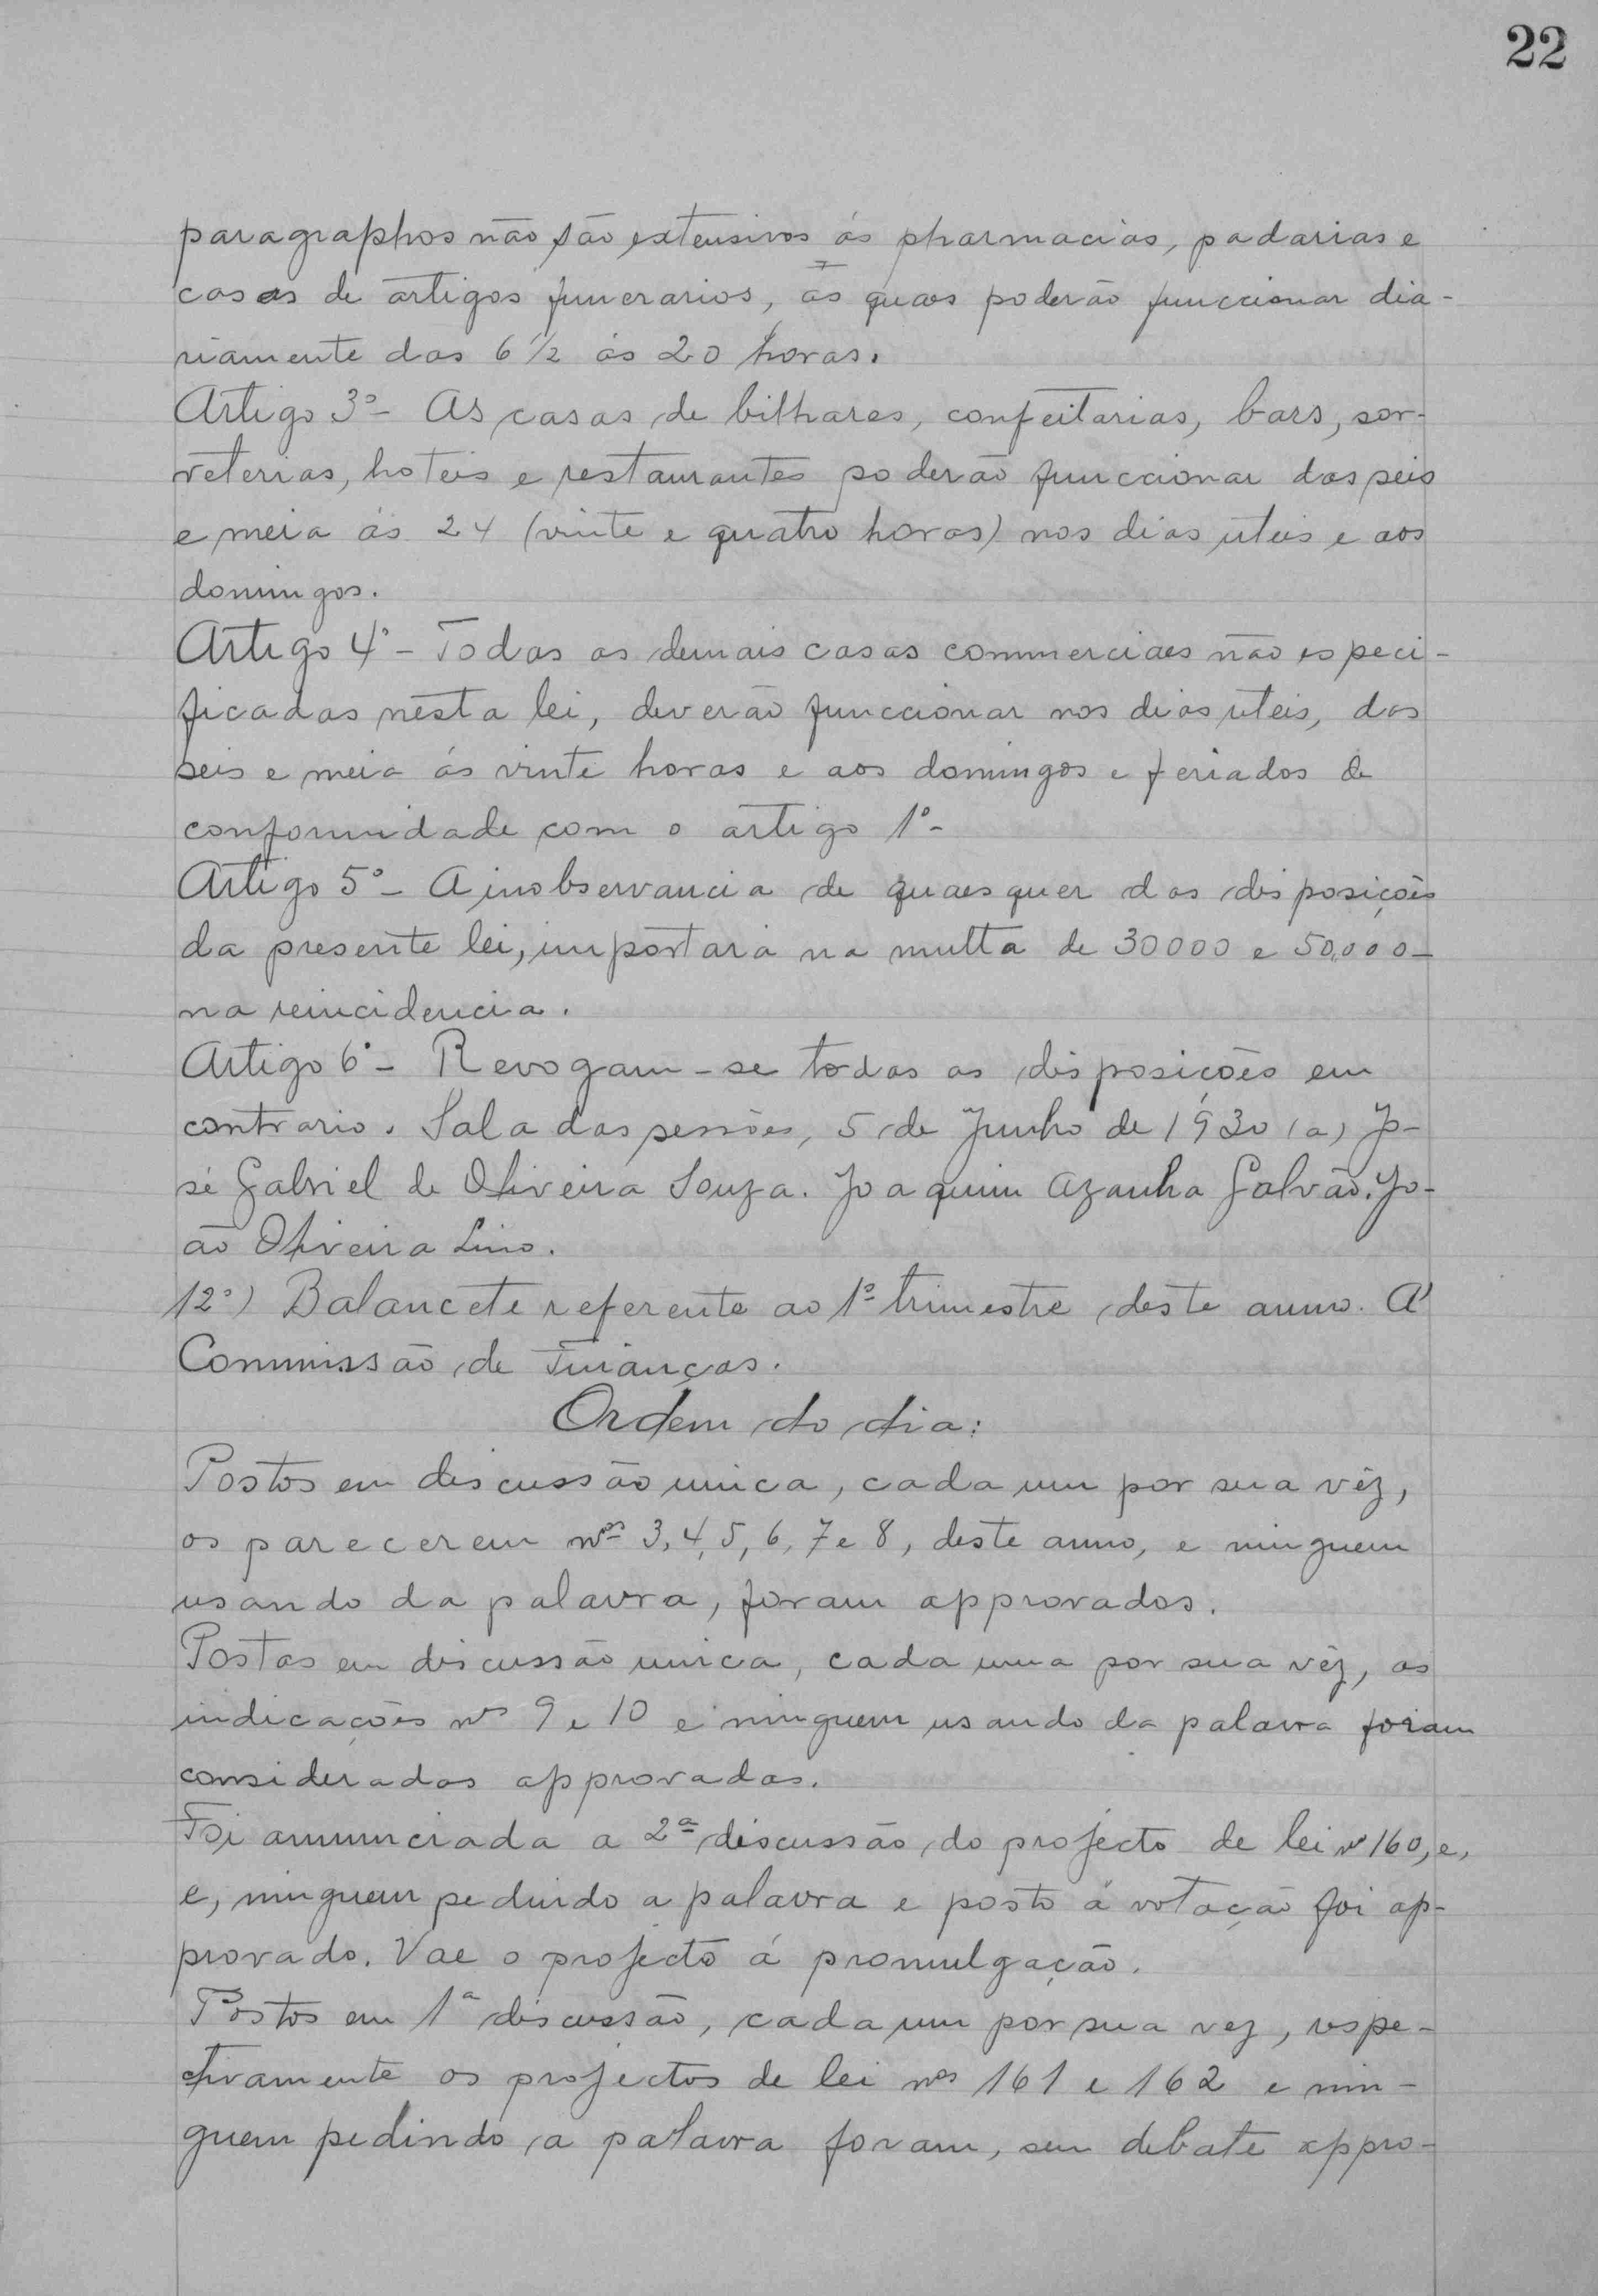 22
paragraphos não são extensivos ás pharmacias, padarias e
casas de artigos funerarios, as quaes poderão funccionar dia-
riamente das 6 1/2 ás 20 horas.
Artigo 3º - As casas de bilhares, confeitarias, bars, sor-
veterias, hoteis e restaurantes poderão funccionar das seis
e meia ás 24 (vinte e quatro horas) nos dias uteis e aos
domingos.
Artigo 4º - Todas as demais casas commerciaes não especi-
ficadas nesta lei, deverão funccionar nos dias uteis, das
seis e meia ás vinte horas e aos domingos e feriados de
conformidade com o artigo 1º -
Artigo 5º - A inobservancia de quaesquer das disposições
da presente lei, importará na multa de 30000 e 50,000 -
na reincidencia.
Artigo 6º - Revogam-se todas as disposições em
contrario. Sala das sessões, 5 de Junho de 1930 (a) Jo-
sé Gabriel de Oliveira Souza. Joaquim Azanha Galvão. Jo-
ão Oliveira Lino.
12º) Balancete referente ao 1º trimestre deste anno. A'
Commissão de Finanças.
Ordem do dia:
Postos em discussão unica, cada um por sua vêz,
os parecerem nos 3, 4, 5, 6, 7 e 8, deste anno, e ninguem
usando da palavra, foram approvados.
Postas em discussão unica, cada uma por sua vêz, as
indicações nos 9 e 10 e ninguem usando da palavra foram
consideradas approvadas.
Foi annunciada a 2ª discussão do projecto de lei nº 160, e,
e, ninguem pedindo a palavra e posto á votação foi ap-
provado. Vae o projecto á promulgação.
Postos em 1ª discussão, cada um por sua vez, respe-
ctivamente os projectos de lei nos 161 e 162 e nin-
guem pedindo a palavra foram, sem debate appro-